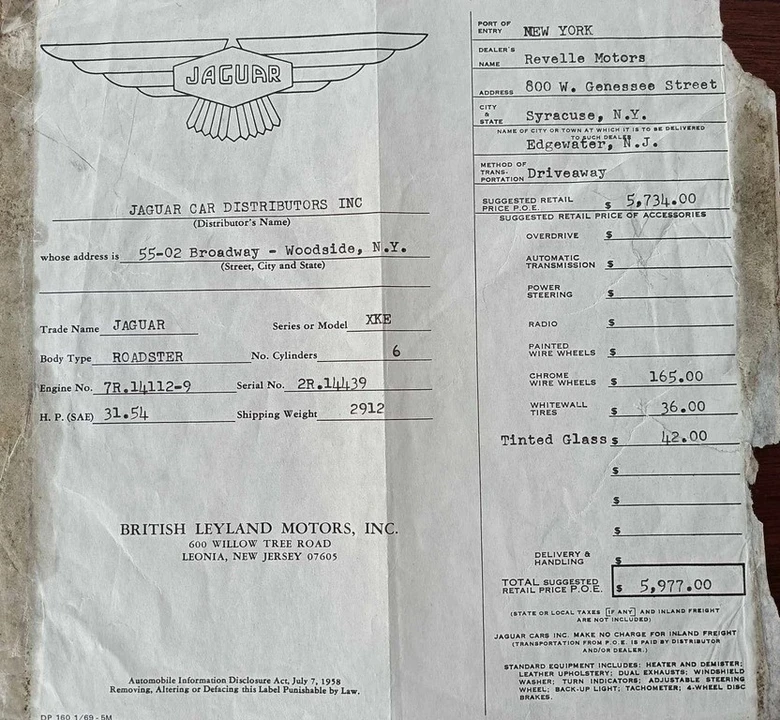 JAGUAR
JAGUAR CAR DISTRIBUTORS INC
(Distributor's Name)
whose address is 55-02 Broadway - Woodside, N.Y.
(Street, City and State)
Trade Name JAGUAR Series or Model XKE
Body Type ROADSTER No. Cylinders 6
Engine No. 7R.14112-9 Serial No. 2R.14439
H. P. (SAE) 31.54 Shipping Weight 2912
BRITISH LEYLAND MOTORS, INC.
600 WILLOW TREE ROAD
LEONIA, NEW JERSEY 07605
Automobile Information Disclosure Act, July 7, 1958
Removing, Altering or Defacing this Label Punishable by Law.
DP 160 1/69-5M
PORT OF ENTRY NEW YORK
DEALER'S NAME Revelle Motors
ADDRESS 800 W. Genessee Street
CITY & STATE Syracuse, N.Y.
NAME OF CITY OR TOWN AT WHICH IT IS TO BE DELIVERED
TO SUCH DEALER
Edgewater, N.J.
METHOD OF TRANS-PORTATION Driveaway
SUGGESTED RETAIL PRICE P.O.E. $ 5,734.00
SUGGESTED RETAIL PRICE OF ACCESSORIES
OVERDRIVE $
AUTOMATIC TRANSMISSION $
POWER STEERING $
RADIO $
PAINTED WIRE WHEELS $
CHROME WIRE WHEELS $ 165.00
WHITEWALL TIRES $ 36.00
Tinted Glass $ 42.00
$
$
$
DELIVERY & HANDLING $
TOTAL SUGGESTED RETAIL PRICE P.O.E. $ 5,977.00
(STATE OR LOCAL TAXES [IF ANY] AND INLAND FREIGHT
ARE NOT INCLUDED)
JAGUAR CARS INC. MAKE NO CHARGE FOR INLAND FREIGHT
(TRANSPORTATION FROM P.O.E. IS PAID BY DISTRIBUTOR
AND/OR DEALER.)
STANDARD EQUIPMENT INCLUDES: HEATER AND DEMISTER;
LEATHER UPHOLSTERY; DUAL EXHAUSTS; WINDSHIELD
WASHER; TURN INDICATORS; ADJUSTABLE STEERING
WHEEL; BACK-UP LIGHT; TACHOMETER; 4-WHEEL DISC
BRAKES.